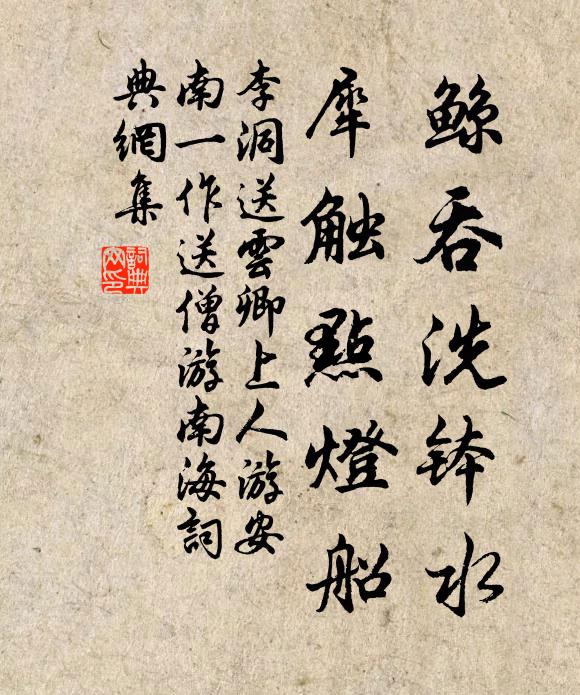 鲸吞洗钵水
犀触點燈船
李洞送雲卿上人游安
南一作送僧游南海詞
典網集
詞典網印